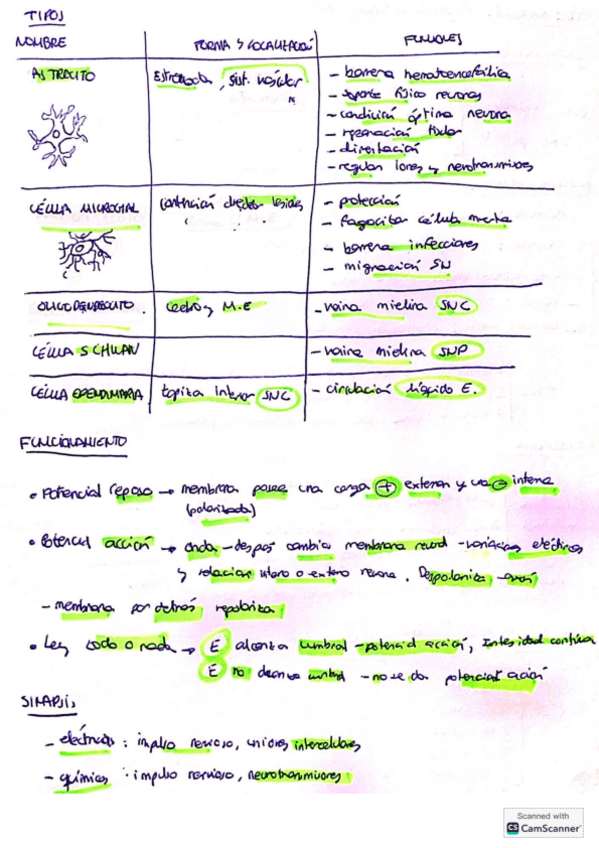 TIPOS
NOMBRE FORMA Y LOCALIZACIÓN FUNCIONES
ASTROCITO Estrellada, sist. vascular - barrera hematoencefálica
- soporte físico neuronas
- condición óptima neurona
- reparación tisular
- alimentación
- regular iones y neurotransmisores
CÉLULA MICROGLIAL - protección
- fagocitar célula muerta
- barrera infecciones
- migración SN
OLIGODENDROCITO. cerebro y M.E - vaina mielina SNC
CÉLULA SCHWAN - vaina mielina SNP
CÉLULA EPENDIMARIA tapiza interior SNC - circulación líquido E.
FUNCIONAMIENTO
• Potencial reposo → membrana posee una carga + externa y una - interna
(polarizada)
• Potencial acción → onda - despos cambia membrana neural - variaciones eléctricas
y relación interno o externo neurona. Despolariza
- membrana por detrás repolariza
• Ley todo o nada → E alcanza umbral - potencial acción, Intensidad continua
E no alcanza umbral - no se da potencial acción
SINAPSIS
- eléctricas : impulso nervioso, uniones intercelulares
- químicas : impulso nervioso, neurotransmisores
Scanned with
CS CamScanner